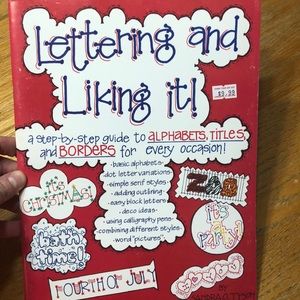 Lettering and
Liking it!
$9.99
a step-by-step guide to ALPHABETS, TITLES,
and BORDERS for every occasion!
•basic alphabets•
•dot letter variations•
•simple serif styles•
•adding outlining•
•easy block letters•
•deco ideas•
•using calligraphy pens•
•combining different styles•
•word "pictures"•
it's
CHRISTMAS!
ZOO
bath
time!
it's
PARTY
FOURTH OF JULY
BY